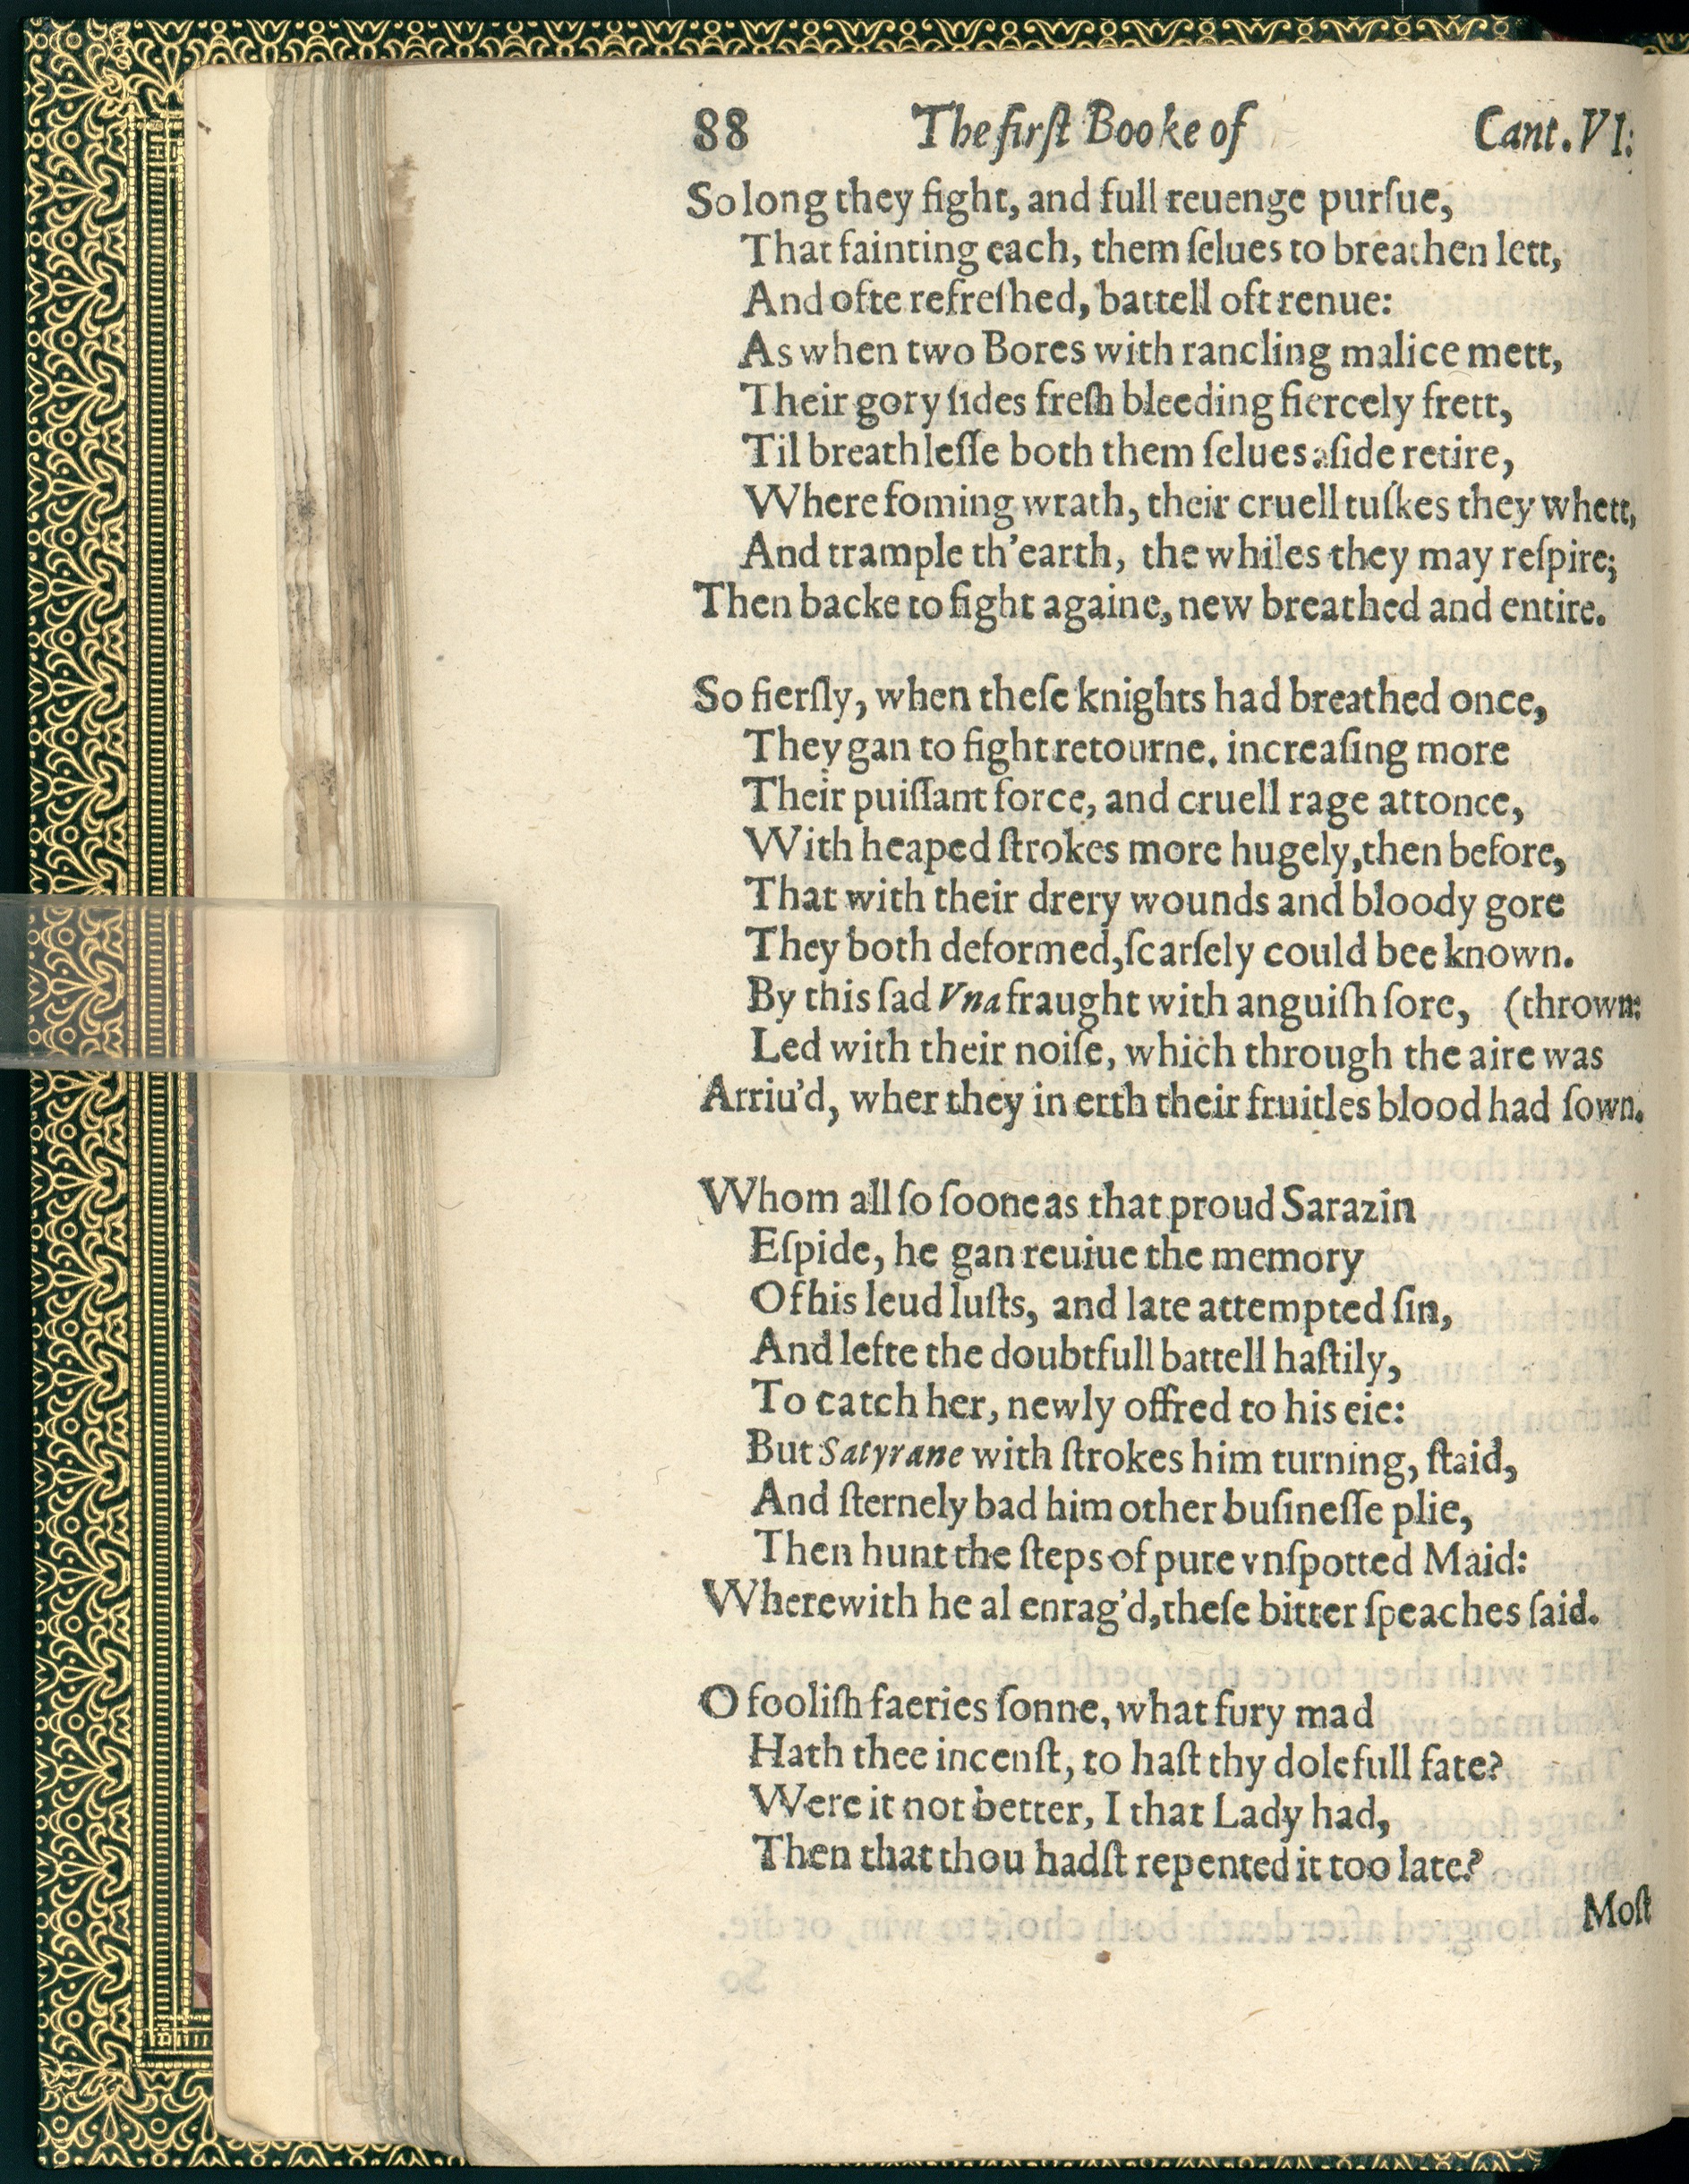 88 The firſt Booke of Cant. VI:
So long they fight, and full reuenge purſue,
That fainting each, them ſelues to breathen lett,
And ofte refreſhed, battell oft renue:
As when two Bores with rancling malice mett,
Their gory ſides freſh bleeding fiercely frett,
Til breathleſſe both them ſelues aſide retire,
Where foming wrath, their cruell tuſkes they whett,
And trample th'earth, the whiles they may reſpire;
Then backe to fight againe, new breathed and entire.
So fierſly, when theſe knights had breathed once,
They gan to fight retourne, increaſing more
Their puiſſant force, and cruell rage attonce,
With heaped ſtrokes more hugely, then before,
That with their drery wounds and bloody gore
They both deformed, ſcarſely could bee known.
By this ſad Vna fraught with anguiſh ſore, (thrown:
Led with their noiſe, which through the aire was
Arriu'd, wher they in erth their fruitles blood had ſown.
Whom all ſo ſoone as that proud Sarazin
Eſpide, he gan reuiue the memory
Of his leud luſts, and late attempted ſin,
And lefte the doubtfull battell haſtily,
To catch her, newly offred to his eie:
But Satyrane with ſtrokes him turning, ſtaid,
And ſternely bad him other buſineſſe plie,
Then hunt the ſteps of pure vnſpotted Maid:
Wherewith he al enrag'd, theſe bitter ſpeaches ſaid.
O fooliſh faeries ſonne, what fury mad
Hath thee incenſt, to haſt thy dolefull fate?
Were it not better, I that Lady had,
Then that thou hadſt repented it too late?
Moſt